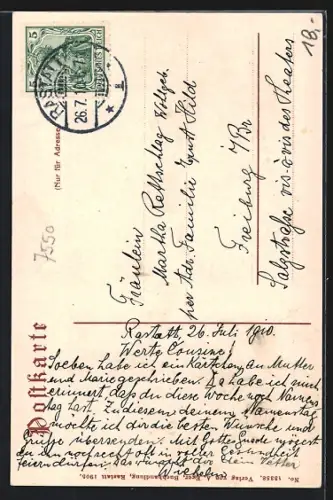 18,-
5
DEUTSCHES REICH
RASTATT
26.7.10
7550
Postkarte
(Nur für Adresse)
Fräulein
Martha Rettschlag
per Adr. Familie Ernst Hild
Freiburg i/Br
Salzstraße vis-à-vis des Theaters
Rastatt, 26. Juli 1910.
Werte Cousine!
Soeben habe ich ein Kärtchen an Mutter
und Marie geschrieben. Da habe ich mich
erinnert dass du diese Woche noch Namens
tag hast. Zu diesem deinem Namenstag
möchte ich dir die besten Wünsche und
Grüße übersenden. Mit Gottes Gnade mögest
du ihn noch recht oft in voller Gesundheit
feiern dürfen. Das wünscht dir dein Vetter
Wilhelm
No. 13358. Verlag Buchhandlung, Rastatt 1905.